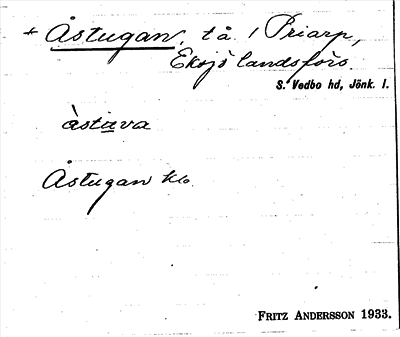 + Åstugan, tå. / Priarp,
Eksjö landsförs.
S. Vedbo hd, Jönk. l.
àstava
Åstugan kb.
FRITZ ANDERSSON 1933.